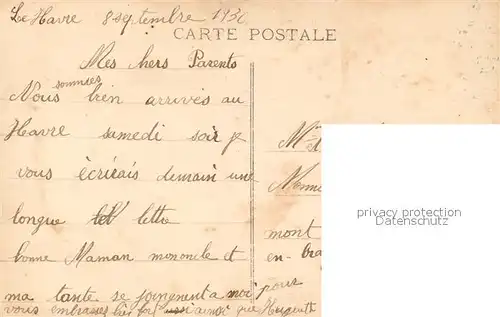 Le Havre 8 septembre 1930
CARTE POSTALE
Mes chers Parents
sommes
Nous bien arrivés au
Havre samedi soir je
vous écrirais demain une
longue lettre
bonne Maman mononcle et
ma tante se joingnent a moi pour
vous embrasser bien fort ainsi que Huguette
mont
en-bra
privacy protection
Datenschutz